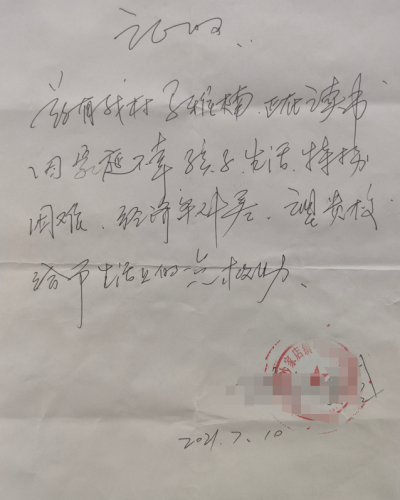 证明
兹有我村孙雅楠.正在读书
因家庭不幸孩子.生活.特别
困难.经济条件差.望贵校
给予生活上的
家店
2021.7.10